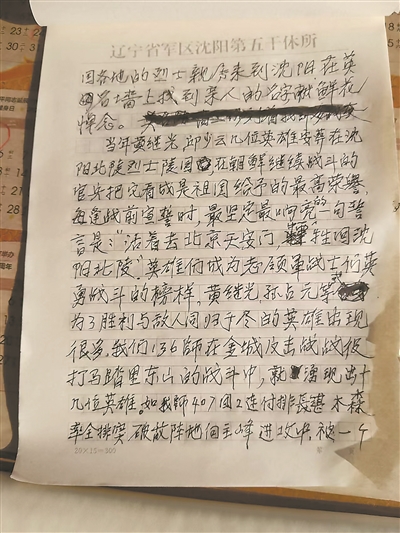 辽宁省军区沈阳第五干休所
国各地的烈士亲属来到沈阳在英
名墙上找到亲人的名字献鲜花
悼念。
当年黄继光、邱少云几位英雄安葬在沈
阳北陵烈士陵园,在朝鲜继续战斗的
官兵把它看成是祖国给予的最高荣誉,
每逢战前宣誓时,最坚定最响亮的一句誓
言是:"活着去北京天安门,牺牲回沈
阳北陵"英雄们成为志愿军战士们英
勇战斗的榜样,黄继光、孙占元等
为了胜利与敌人同归于尽的英雄出现
很多。我们136师在金城反击战战役
打马踏里东山的战斗中,就涌现出十
几位英雄。如我师407团2连付排长谌木森
率全排突破敌阵地向主峰进攻中,被一个
20×15=300